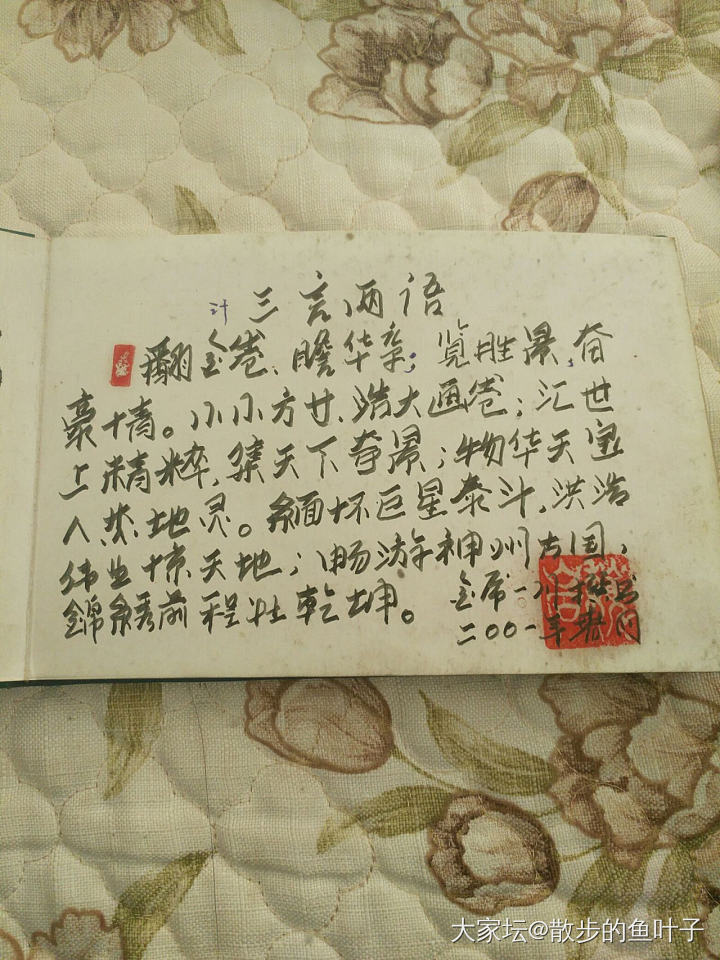 计 三言两语
翻金卷、瞻华章；览胜景，奋
豪情。小小方寸，浩大通卷；汇世
上精粹，集天下奇景；物华天宝
人杰地灵。缅怀巨星泰斗，洪浩
伟业惊天地；畅游神州古国，
錦绣前程壮乾坤。
二00一年
大家坛@散步的鱼叶子